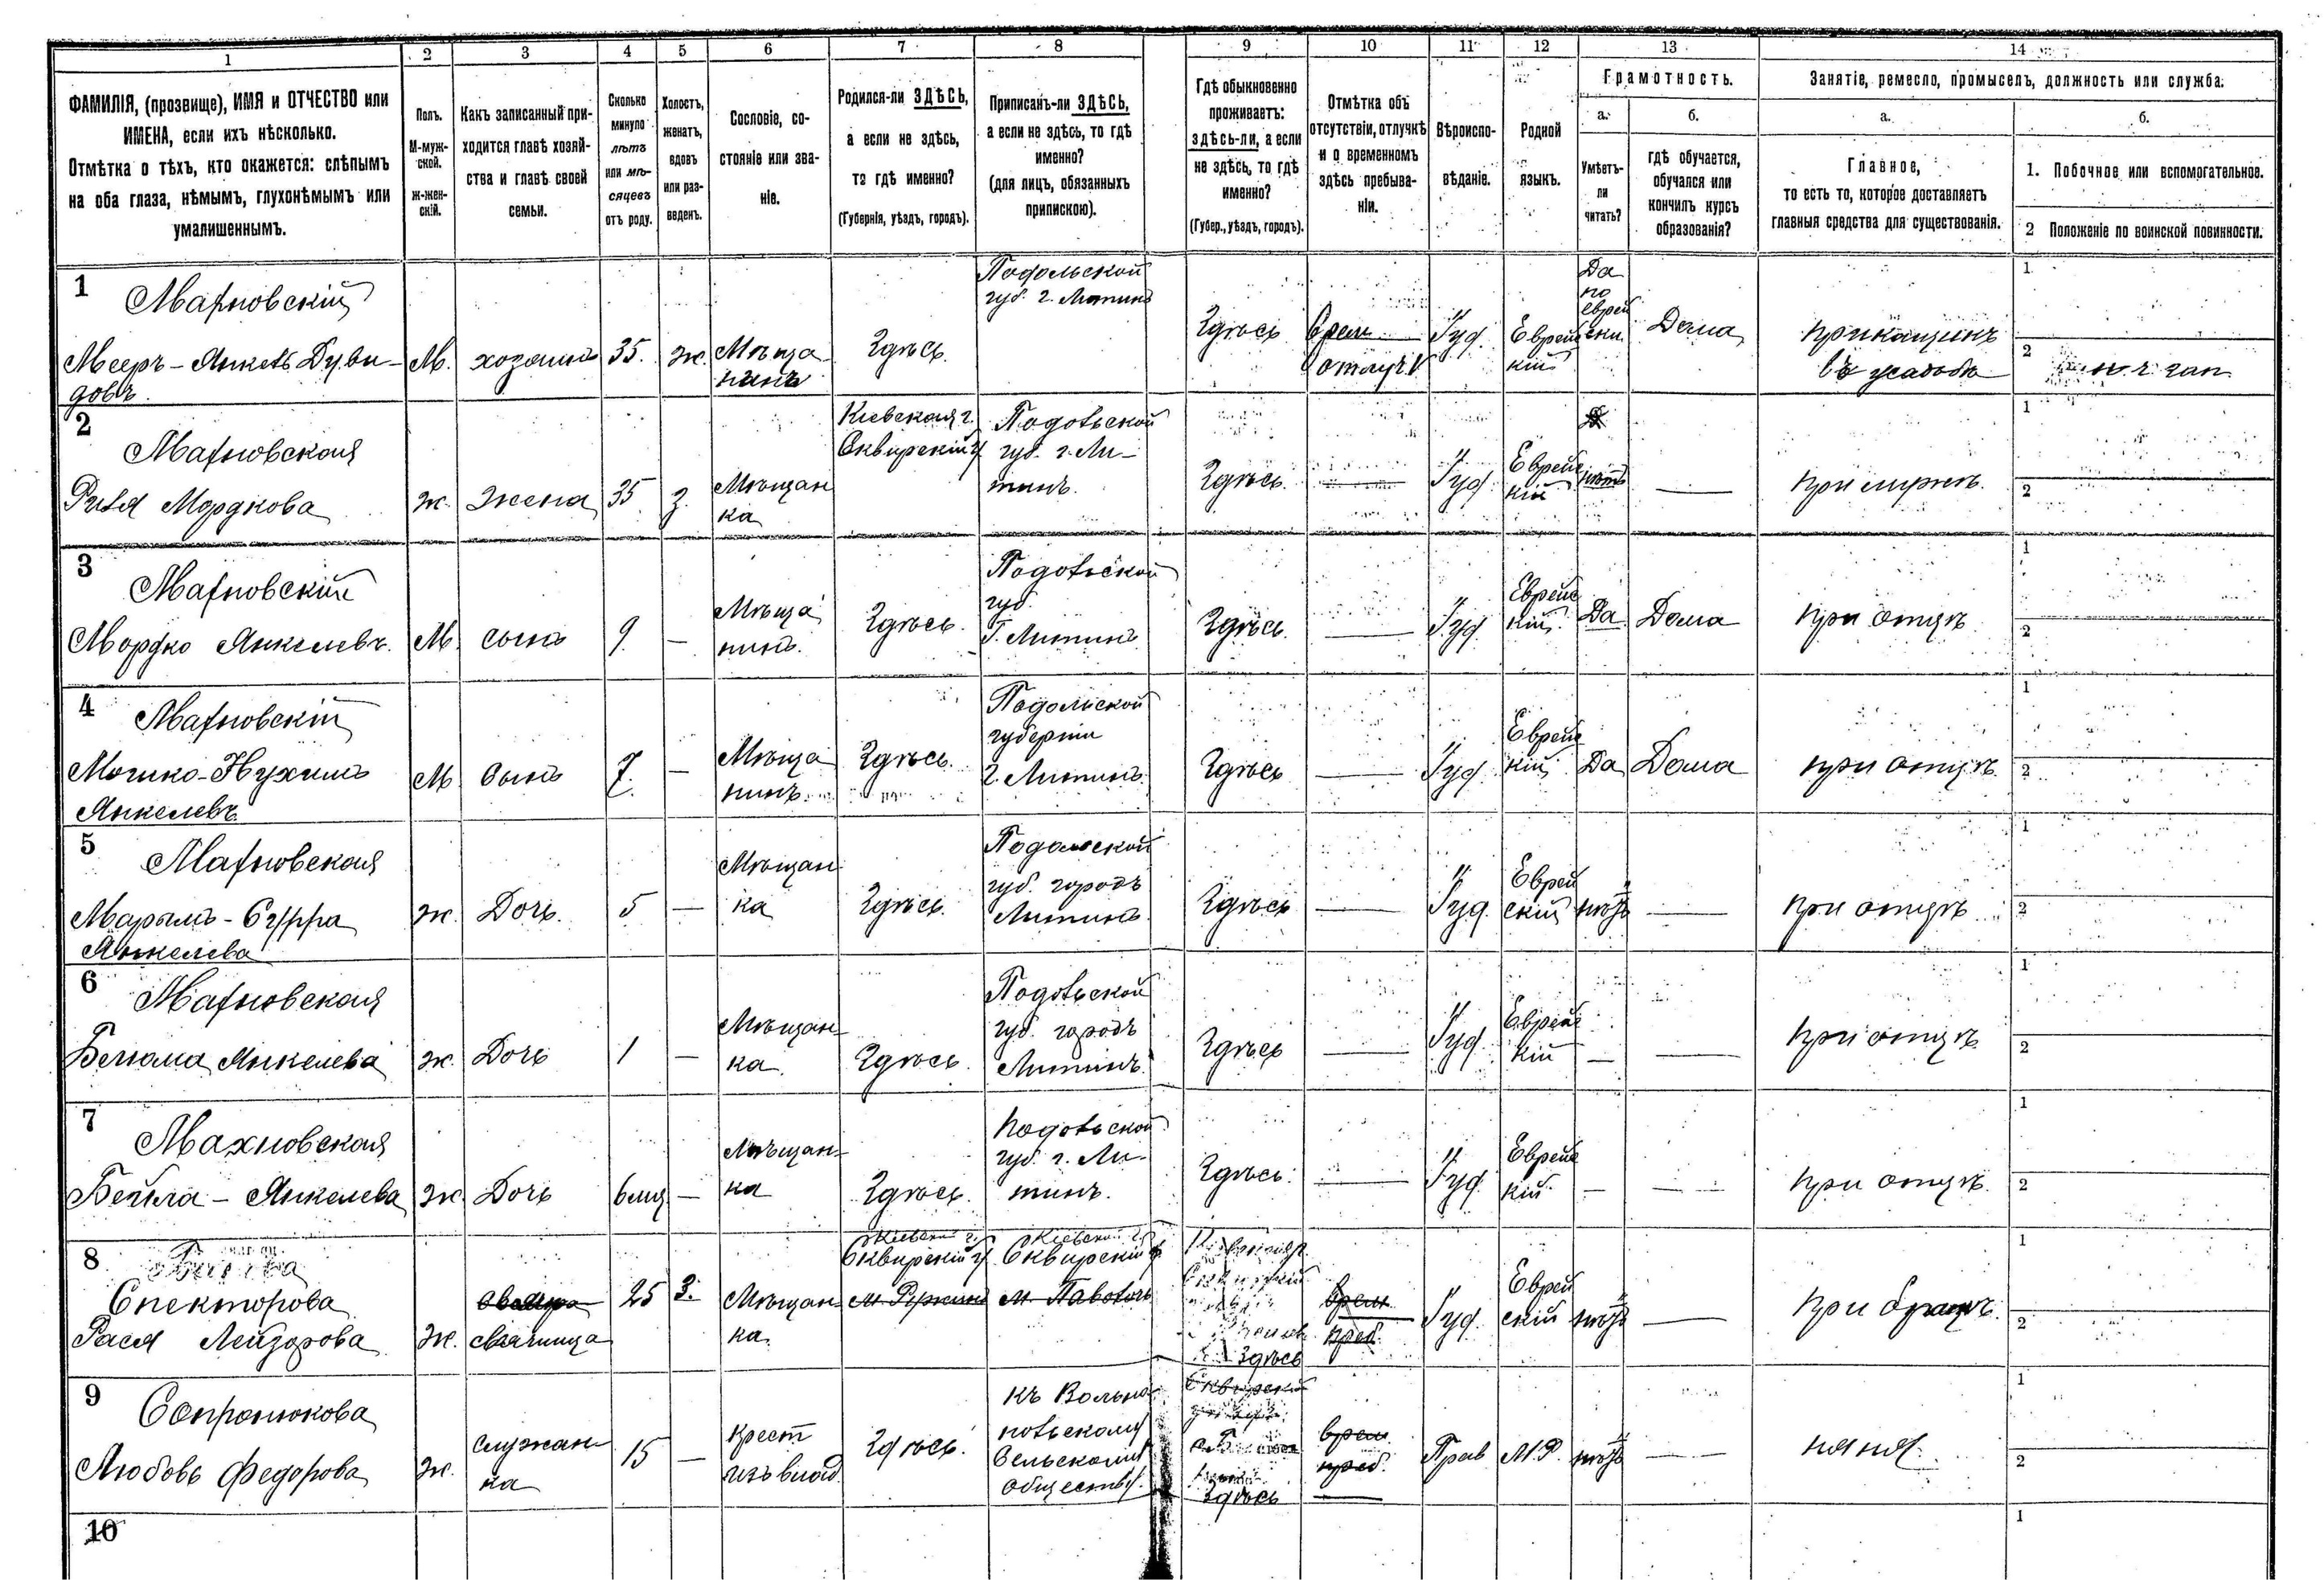 1 2 3 4 5 6 7 8 9 10 11 12 13 14
ФАМИЛІЯ, (прозвище), ИМЯ и ОТЧЕСТВО или
ИМЕНА, если ихъ нѣсколько.
Отмѣтка о тѣхъ, кто окажется: слѣпымъ
на оба глаза, нѣмымъ, глухонѣмымъ или
умалишеннымъ.
Полъ.
М-муж-
ской.
ж-жен-
скій.
Какъ записанный при-
ходится главѣ хозяй-
ства и главѣ своей
семьи.
Сколько
минуло
лѣтъ
или мѣ-
сяцевъ
отъ роду.
Холостъ,
женатъ,
вдовъ
или раз-
веденъ.
Сословіе, со-
стояніе или зва-
ніе.
Родился-ли ЗДѢСЬ,
а если не здѣсь,
то гдѣ именно?
(Губернія, уѣздъ, городъ).
Приписанъ-ли ЗДѢСЬ,
а если не здѣсь, то гдѣ
именно?
(для лицъ, обязанныхъ
припискою).
Гдѣ обыкновенно
проживаетъ:
здѣсь-ли, а если
не здѣсь, то гдѣ
именно?
(Губер., уѣздъ, городъ).
Отмѣтка объ
отсутствіи, отлучкѣ
и о временномъ
здѣсь пребыва-
ніи.
Вѣроиспо-
вѣданіе.
Родной
языкъ.
Грамотность.
а.
Умѣетъ-
ли
читать?
б.
гдѣ обучается,
обучался или
кончилъ курсъ
образованія?
Занятіе, ремесло, промыселъ, должность или служба.
а.
Главное,
то есть то, которое доставляетъ
главныя средства для существованія.
б.
1. Побочное или вспомогательное.
2 Положеніе по воинской повинности.
1
Махновскій
Мееръ-Янкель Дуви-
довъ
М.
хозяинъ
35.
ж.
Мѣща
нинъ
Здѣсь
Подольской
губ. г. Литинъ
Здѣсь
врем
отлуч
Іуд
Еврейс
кій
Да
по
еврей
ски
Дома
прикащикъ
1
2
2
Махновская
Рися Мордкова
ж.
Жена
35
з.
Мѣщан
ка
Кіевская г.
Сквирскій у
Подольской
губ. г. Ли-
тинъ.
Здѣсь
Іуд
Еврейс
кій
нѣтъ
при мужѣ.
1
2
3
Махновскій
Мордко Янкелевъ.
М.
сынъ
9
—
Мѣща
нинъ.
Здѣсь.
Подольской
губ.
г. Литинъ
Здѣсь.
Іуд
Еврейс
кій.
Да
Дома
при отцѣ
1
2
4
Махновскій
Мошко-Нухимъ
Янкелевъ
М
Сынъ
7.
—
Мѣща
нинъ.
Здѣсь.
Подольской
губерніи
г. Литинъ.
Здѣсь
Іуд
Еврейс
кій
Да
Дома
при отцѣ.
1
2
5
Махновская
Марямъ-Сурра
Янкелева
ж.
Дочь.
5
—
Мѣщан
ка
Здѣсь.
Подольской
губ. городъ
Литинъ.
Здѣсь
Іуд.
Еврей
скій
нѣтъ
при отцѣ
1
2
6
Махновская
Янкелева
ж.
Дочь
1
—
Мѣщан-
ка
Здѣсь.
Подольской
губ. городъ
Литинъ.
Здѣсь
Іуд
Еврейс
кій
—
при отцѣ
1
2
7
Махновская
Бейла-Янкелева
ж.
Дочь
6 мц
—
Мѣщан-
ка
Здѣсь.
Подольской
губ. г. Ли-
тинъ.
Здѣсь.
Іуд
Еврейс
кій
—
при отцѣ.
1
2
8
Спекторова
Рася Лейзорова
ж.
своячница
25
з.
Мѣщан
ка.
Кіевской г.
Сквирскій у
Кіевской г.
Сквирскій у
м. Паволочь
Здѣсь
врем.
преб.
Іуд.
Еврей
скій
нѣтъ
при братѣ.
1
2
9
Сопронюкова
Любовь Федорова
ж.
служан
ка
15
—
крест
изъ влад.
Здѣсь.
къ Вольно
польскому
Сельскому
обществу.
Сквирскій
Здѣсь
врем
преб.
Прав
М.Р.
нѣтъ
няня.
1
2
10
1